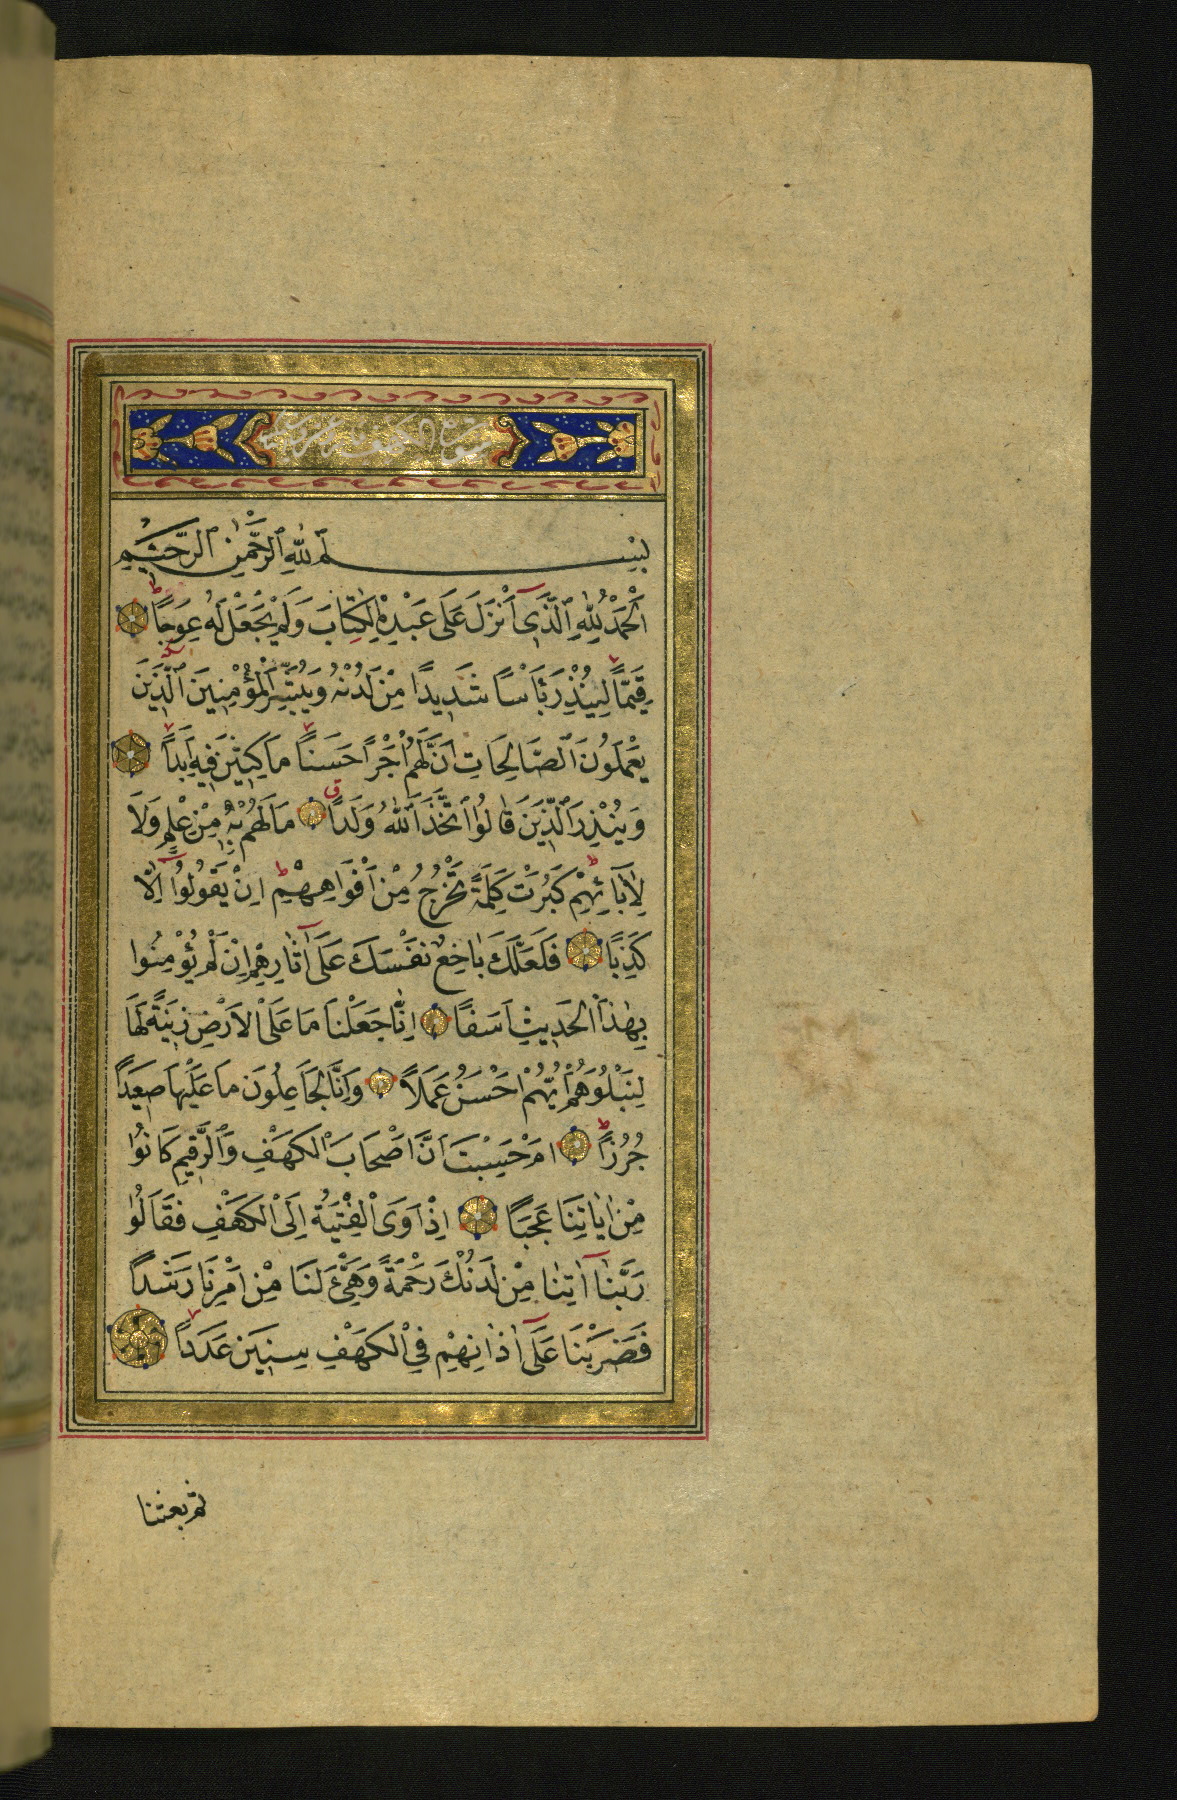 سورة الكهف
بِسْمِ اللّٰهِ الرَّحْمٰنِ الرَّحِيمِ
اَلْحَمْدُ لِلّٰهِ الَّذِىٓ اَنْزَلَ عَلَى عَبْدِهِ الْكِتَابَ وَلَمْ يَجْعَلْ لَهُ عِوَجًا
قَيِّمًا لِيُنْذِرَ بَأْسًا شَدِيدًا مِنْ لَدُنْهُ وَيُبَشِّرَ الْمُؤْمِنِينَ الَّذِينَ
يَعْمَلُونَ الصَّالِحَاتِ اَنَّ لَهُمْ اَجْرًا حَسَنًا مَاكِثِينَ فِيهِ اَبَدًا
وَيُنْذِرَ الَّذِينَ قَالُوا اتَّخَذَ اللّٰهُ وَلَدًا مَا لَهُمْ بِهِ مِنْ عِلْمٍ وَلَا
لِاٰبَائِهِمْ كَبُرَتْ كَلِمَةً تَخْرُجُ مِنْ اَفْوَاهِهِمْ اِنْ يَقُولُونَ اِلَّا
كَذِبًا فَلَعَلَّكَ بَاخِعٌ نَفْسَكَ عَلَىٓ اٰثَارِهِمْ اِنْ لَمْ يُؤْمِنُوا
بِهٰذَا الْحَدِيثِ اَسَفًا اِنَّا جَعَلْنَا مَا عَلَى الْاَرْضِ زِينَةً لَهَا
لِنَبْلُوَهُمْ اَيُّهُمْ اَحْسَنُ عَمَلًا وَاِنَّا لَجَاعِلُونَ مَا عَلَيْهَا صَعِيدًا
جُرُزًا اَمْ حَسِبْتَ اَنَّ اَصْحَابَ الْكَهْفِ وَالرَّقِيمِ كَانُوا
مِنْ اٰيَاتِنَا عَجَبًا اِذْ اَوَى الْفِتْيَةُ اِلَى الْكَهْفِ فَقَالُوا
رَبَّنَا اٰتِنَا مِنْ لَدُنْكَ رَحْمَةً وَهَيِّئْ لَنَا مِنْ اَمْرِنَا رَشَدًا
فَضَرَبْنَا عَلَىٓ اٰذَانِهِمْ فِى الْكَهْفِ سِنِينَ عَدَدًا
ثم بعثنا